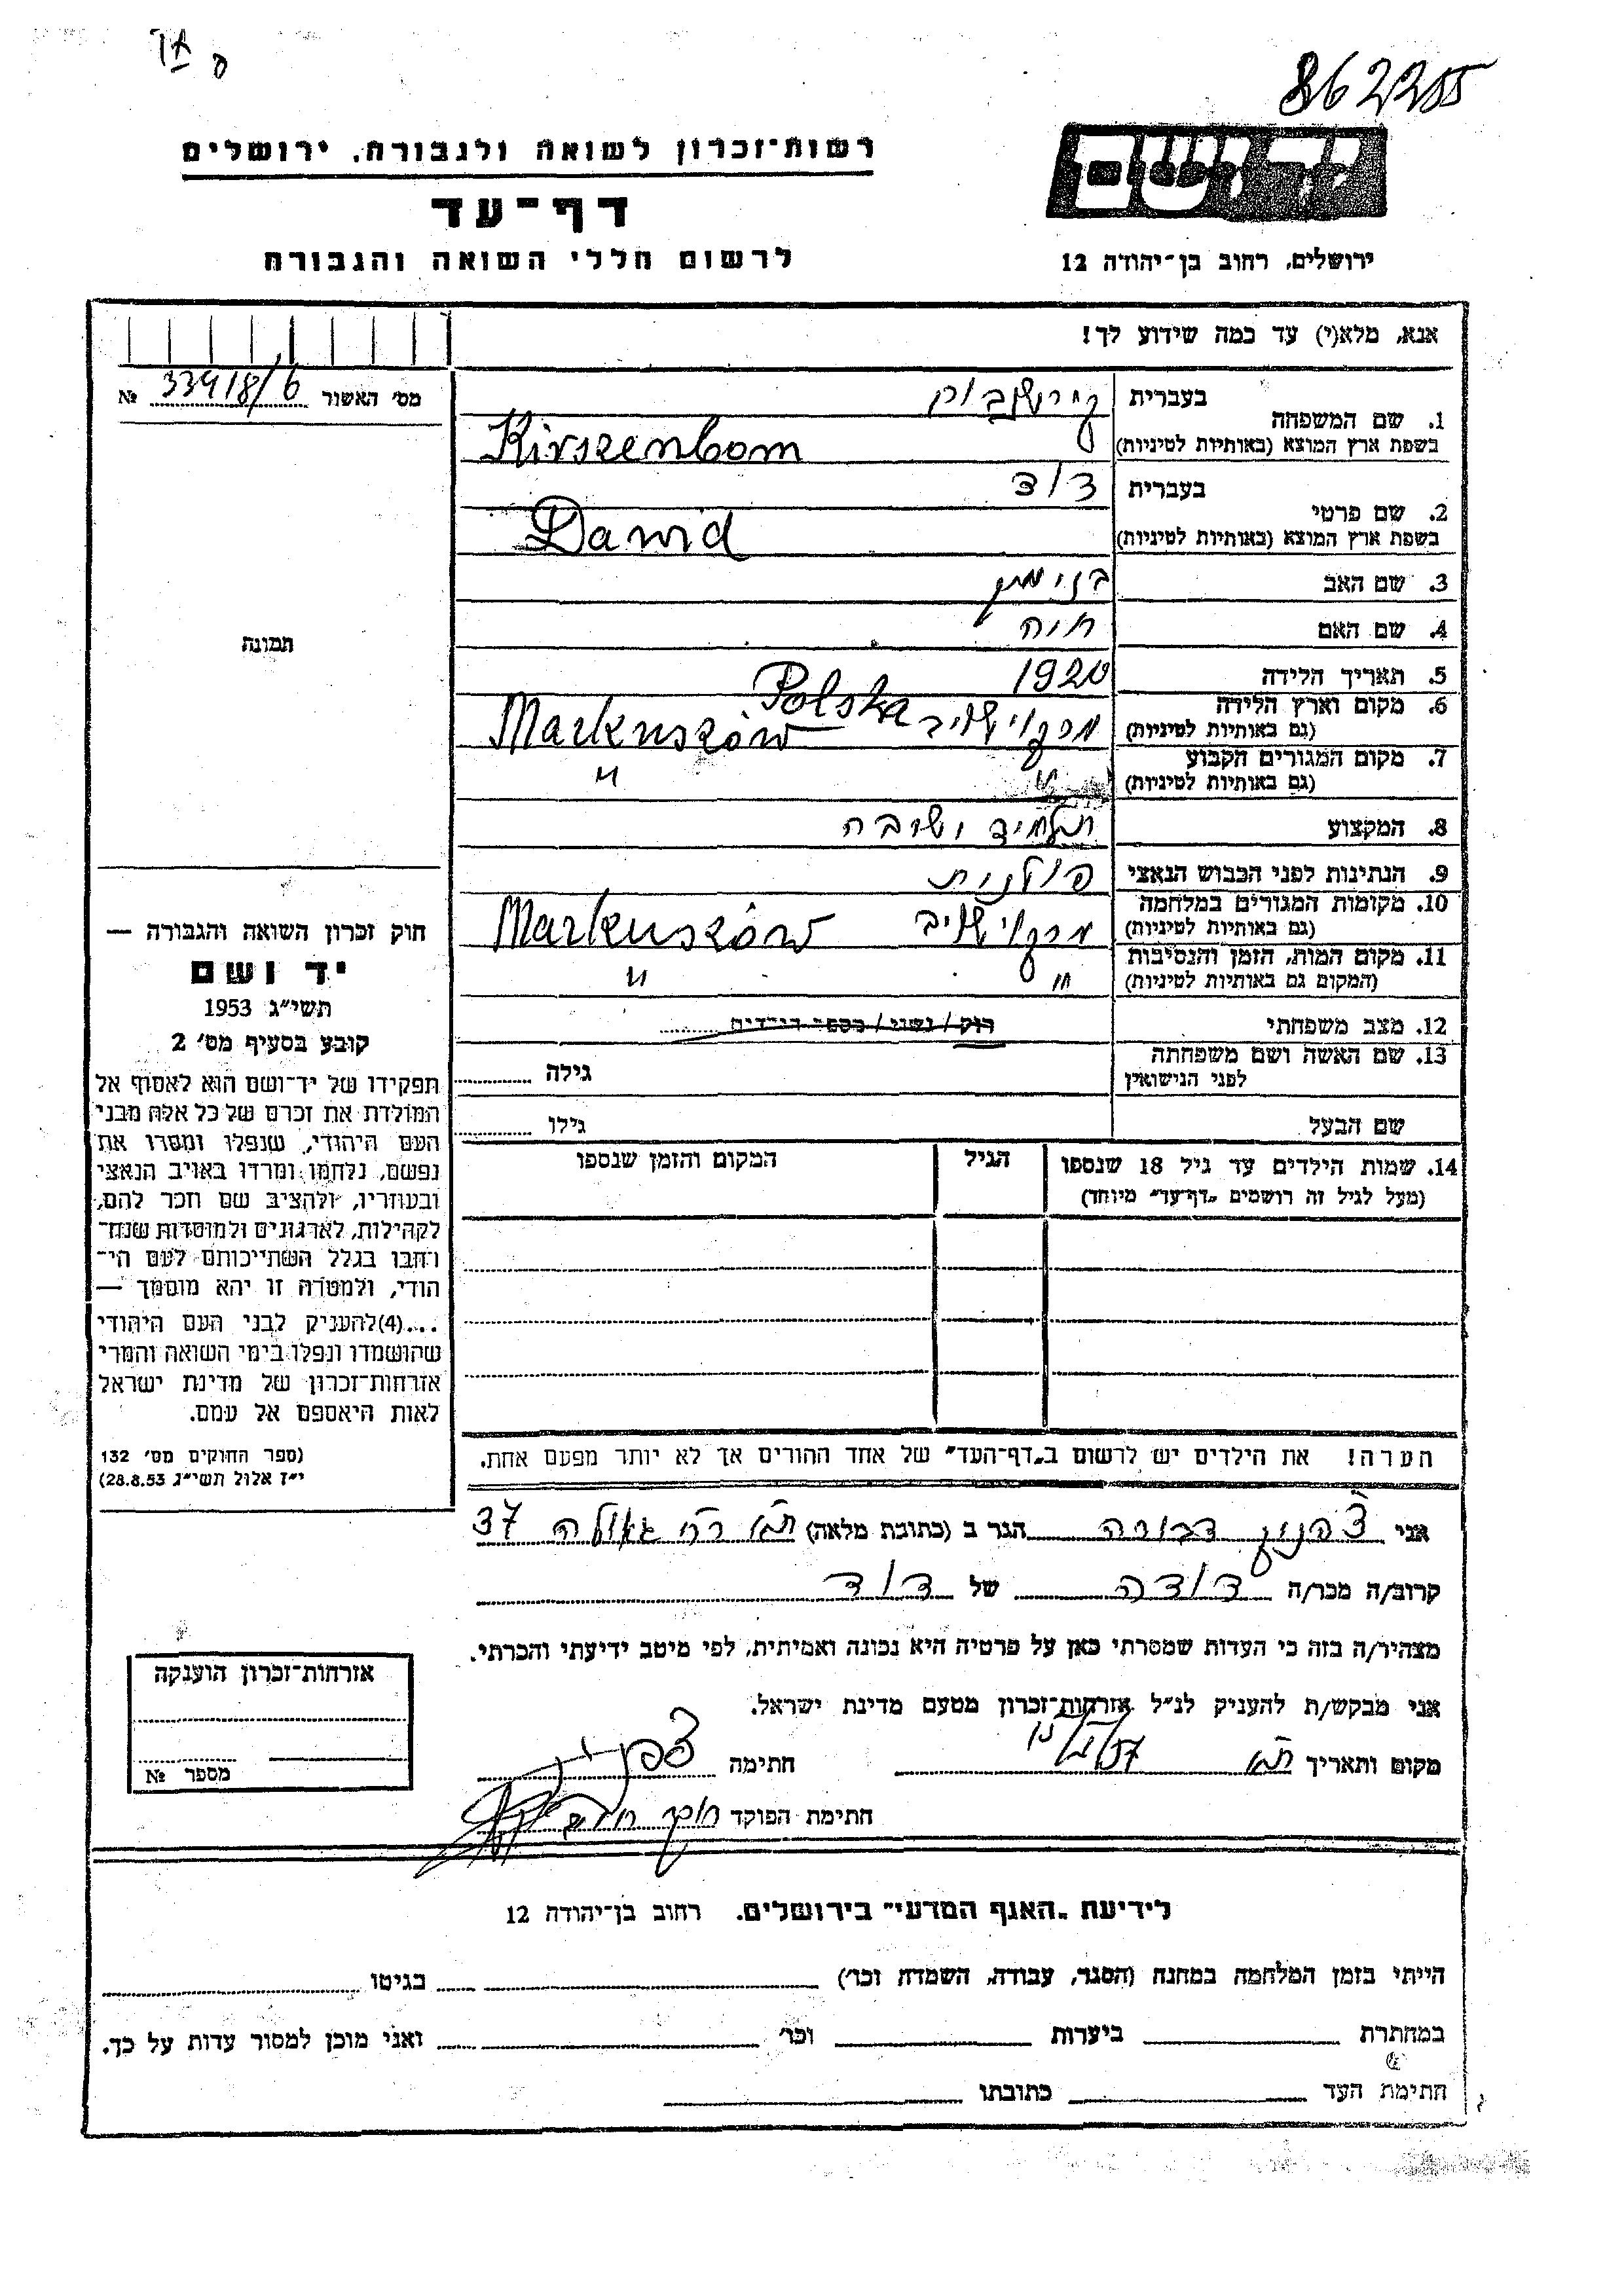 862255
רשות־זכרון לשואה ולגבורה, ירושלים
דף־עד
לרשום חללי השואה והגבורה
יד ושם
ירושלים, רחוב בן־יהודה 12
אנא, מלא(י) עד כמה שידוע לך!
מס' האשור 33918/6 №
1. שם המשפחה בעברית
בשפת ארץ המוצא (באותיות לטיניות) Kirszenbom
2. שם פרטי בעברית דוד
בשפת ארץ המוצא (באותיות לטיניות) Dawid
3. שם האב בנימין
4. שם האם חיה
5. תאריך הלידה 1920
6. מקום וארץ הלידה (גם באותיות לטיניות) מרקושוב Markuszów Polska
7. מקום המגורים הקבוע (גם באותיות לטיניות) " "
8. המקצוע תלמיד ישיבה
9. הנתינות לפני הכבוש הנאצי פולנית
10. מקומות המגורים במלחמה (גם באותיות לטיניות) Markuszów
11. מקום המות, הזמן והנסיבות (המקום גם באותיות לטיניות) " "
12. מצב משפחתי רוק / נשוי / מספר הילדים
13. שם האשה ושם משפחתה לפני הנישואין גילה
שם הבעל גילו
14. שמות הילדים עד גיל 18 שנספו הגיל המקום והזמן שנספו
(מעל לגיל זה רושמים „דף־עד" מיוחד)
הערה! את הילדים יש לרשום ב„דף־העד" של אחד ההורים אך לא יותר מפעם אחת.
תמונה
חוק זכרון השואה והגבורה —
יד ושם
תשי"ג 1953
קובע בסעיף מס' 2
תפקידו של יד־ושם הוא לאסוף אל
המולדת את זכרם של כל אלה מבני
העם היהודי, שנפלו ומסרו את
נפשם, נלחמו ומרדו באויב הנאצי
ובעוזריו, ולהציב שם וזכר להם,
לקהילות, לארגונים ולמוסדות שנח־
רבו בגלל השתייכותם לעם הי־
הודי, ולמטרה זו יהא מוסמך —
...(4)להעניק לבני העם היהודי
שהושמדו ונפלו בימי השואה והמרי
אזרחות־זכרון של מדינת ישראל
לאות היאספם אל עמם.
(ספר החוקים מס' 132
י"ז אלול תשי"ג 28.8.53)
אני דבורה הגר ב (כתובת מלאה) ת"א רח' גאולה 37
קרוב/ה מכר/ה דודה של דוד
מצהיר/ה בזה כי העדות שמסרתי כאן על פרטיה היא נכונה ואמיתית, לפי מיטב ידיעתי והכרתי.
אני מבקש/ת להעניק לנ"ל אזרחות־זכרון מטעם מדינת ישראל.
מקום ותאריך ת"א חתימה
חתימת הפוקד
אזרחות־זכרון הוענקה
מספר №
לידיעת „האגף המדעי" בירושלים. רחוב בן־יהודה 12
הייתי בזמן המלחמה במחנה (הסגר, עבודה, השמדה וכו') בגיטו
במחתרת ביערות וכו' ואני מוכן למסור עדות על כך.
חתימת העד כתובתו